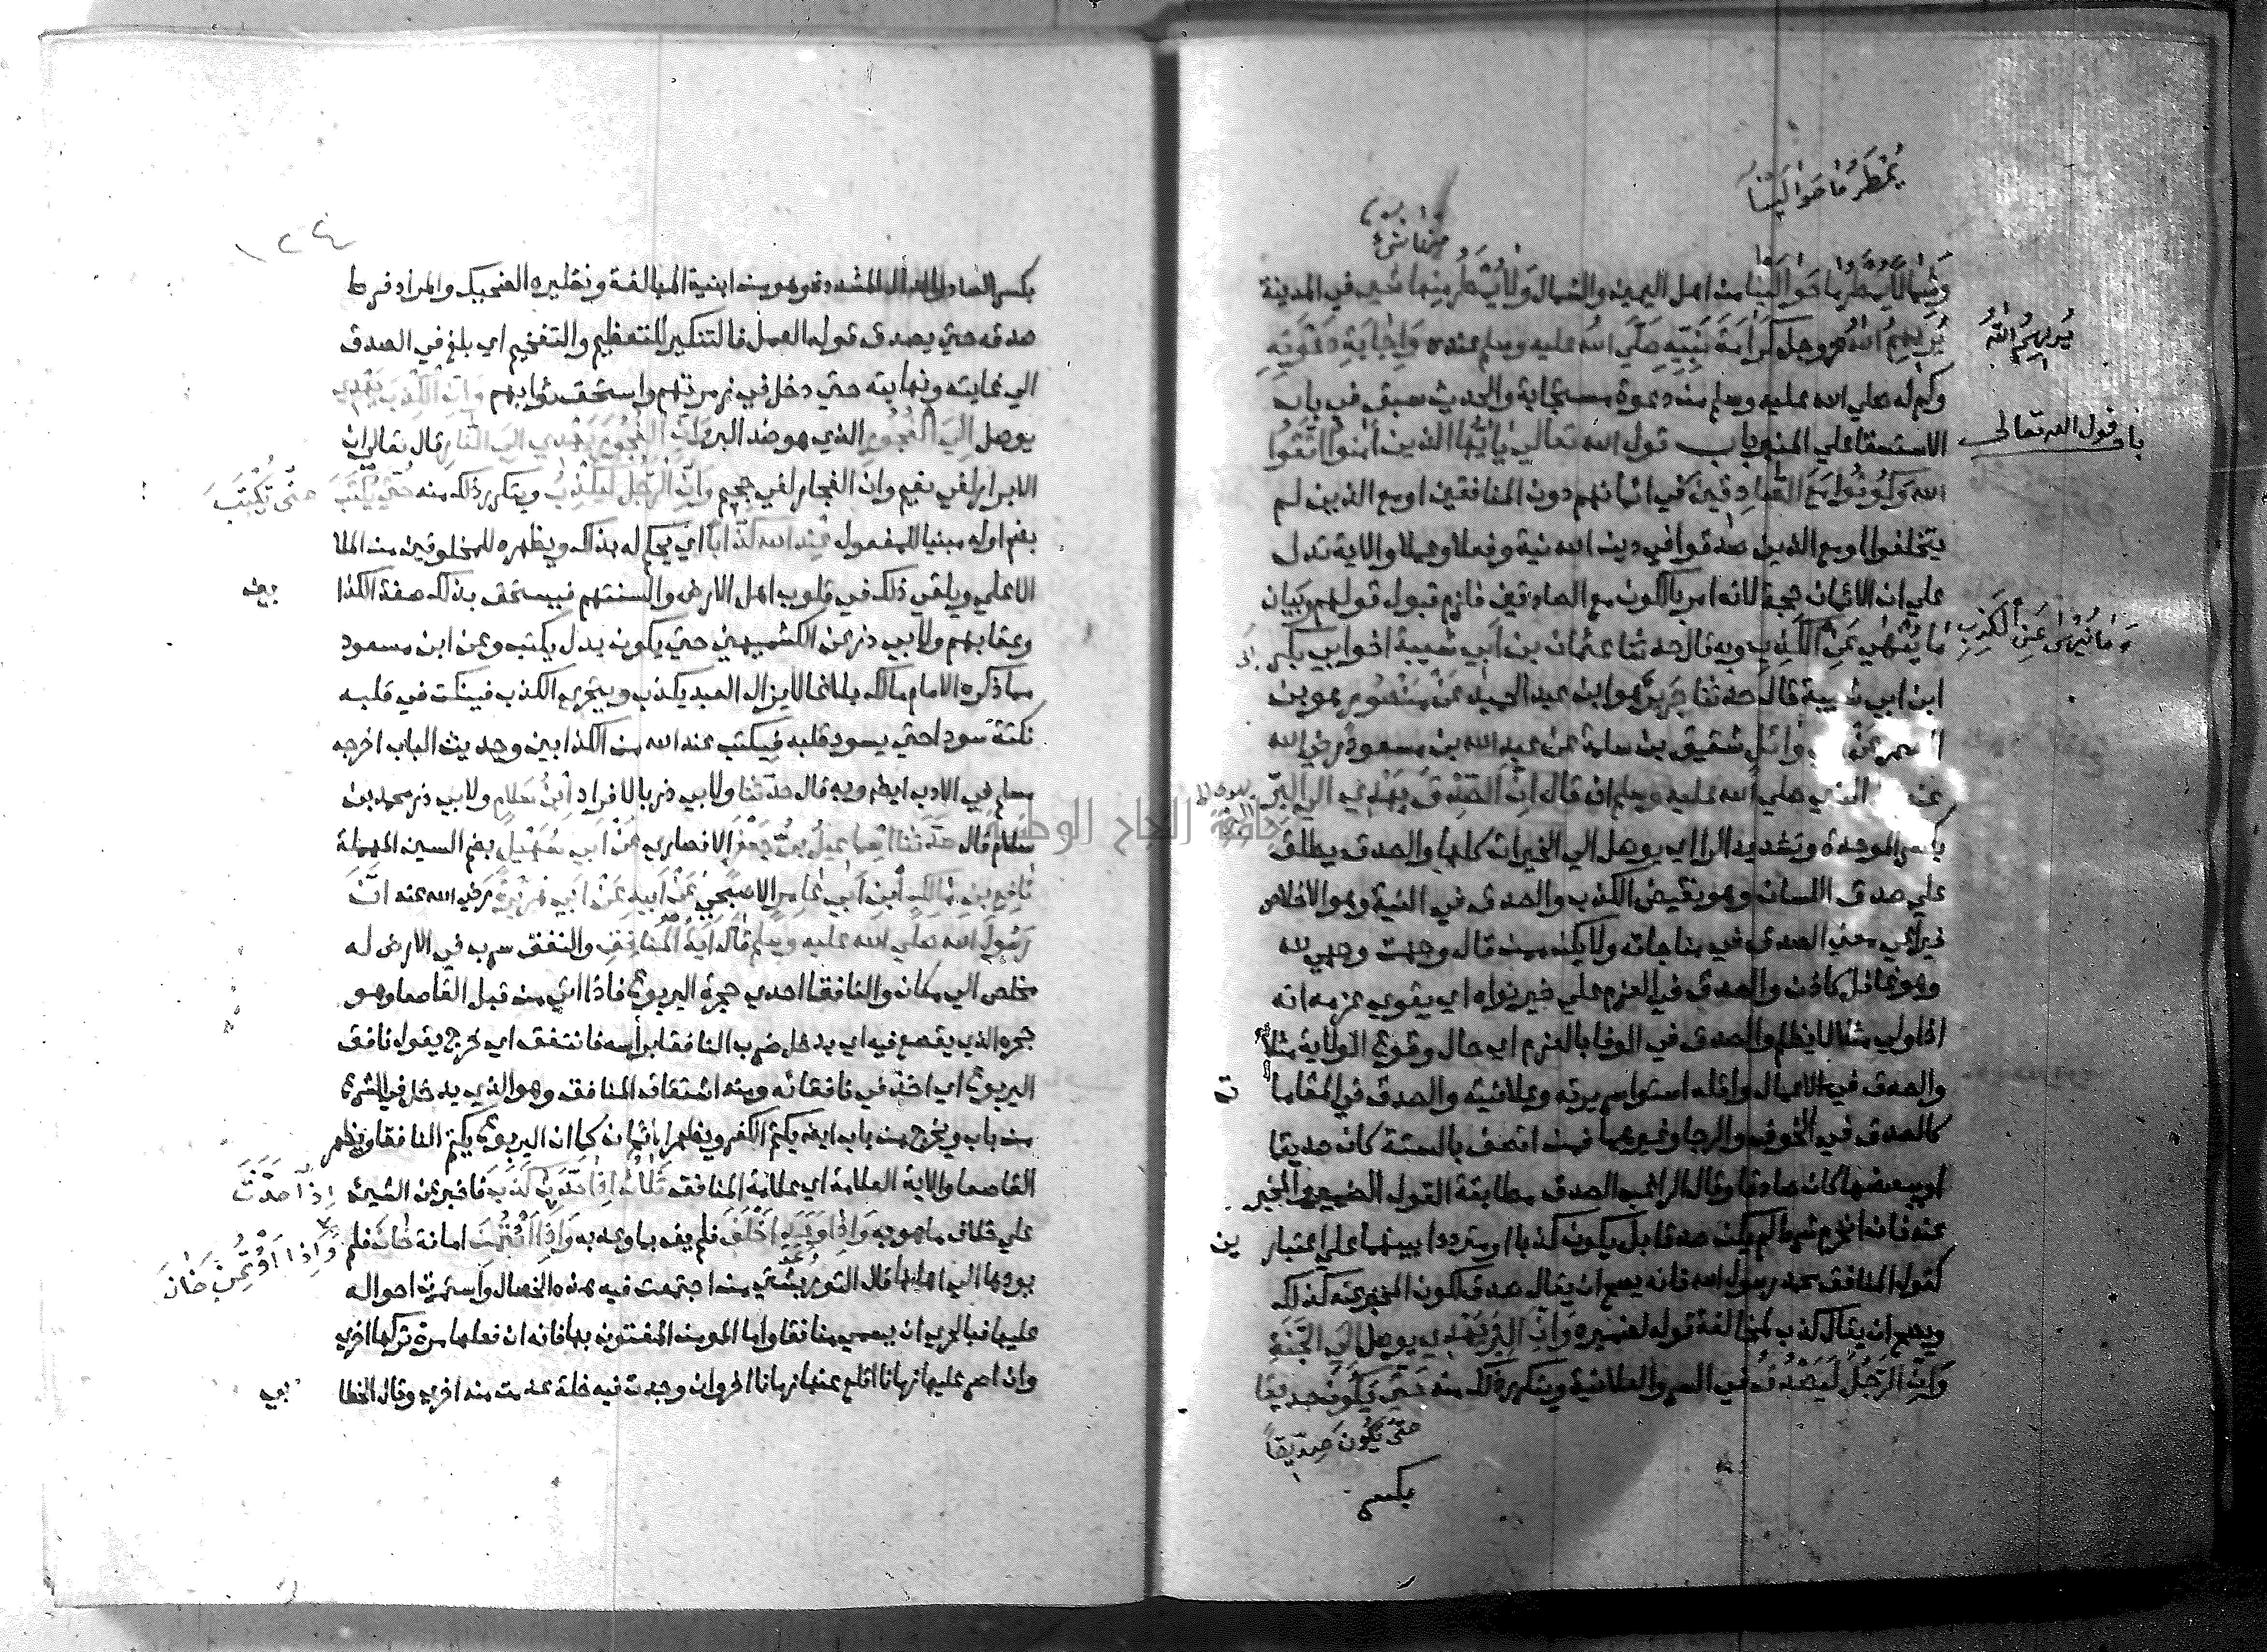 يمطر ما حوالينا
وشمالا يمطر ما حوالينا من اهل اليمين والشمال ولا يمطر منها شي في المدينة
يريهم الله عز وجل كرامة نبيه صلى الله عليه وسلم عنده واجابة دعوته
يريهم الله
وكم له صلي الله عليه وسلم من دعوة مستجابة والحديث سبق في باب
الاستسقا علي المنبر باب قول الله تعالي يا ايها الذين امنوا اتقوا
باب قول الله تعالى
الله وكونوا مع الصادقين في ايمانهم دون المنافقين او مع الذين لم
يتخلفوا او مع الذين صدقوا في دين الله نية وفعلا وعملا والاية تدل
علي ان الايمان حجة لانه امر بالكون مع الصادقين فلزم قبول قولهم وبيان
ما ينهي عن الكذب وبه قال حدثنا عثمان بن ابي شيبة اخو ابي بكر
وما ينهى عن الكذب
ابن ابي شيبة قال حدثنا جرير هو ابن عبد الحميد عن منصور هو بن
وائل شقيق بن سلمة عن عبد الله بن مسعود رضي الله
النبي صلي الله عليه وسلم انه قال ان الصدق يهدي الي البر
بكسر الموحدة وتشديد الرا اي يوصل الي الخيرات كلها والصدق يطلق
علي صدق اللسان وهو نقيض الكذب والصدق في النية وهو الاخلاص
فيراعي معني الصدق في مناجاته ولا يكن ممن قال وجهت وجهي لله
وهو غافل كاذب والصدق في العزم علي خير نواه اي يقوي عزمه انه
اذا ولي مثلا لا يظلم والصدق في الوفا بالعزم اي حال وقوع الولاية مثلا
والصدق في الاعمال واقله استوا سريرته وعلانيته والصدق في المقاما ت
كالصدق في الخوف والرجا وغيرهما فمن اتصف بالستة كان صديقا
او ببعضها كان صادقا وقال الراغب الصدق مطابقة القول الضمير والمخبر
عنه فان انخرم شرط لم يكن صدقا بل يكون كذبا او مترددا بينهما علي اعتبار ين
كقول المنافق محمد رسول الله فانه يصح ان يقال صدق لكون المخبر عنه كذلك
ويصح ان يقال كذب لمخالفة قوله لضميره وان البر يهدي يوصل الي الجنة
وان الرجل ليصدق في السر والعلانية ويتكرر ذلك منه حتي يكون صديقا
حتى يكون صديقا
بكسر
١٢٤
بكسر الصاد والدال المشددة وهو من ابنية المبالغة ونظيره الضحيك والمراد فرط
صدقه حتي يصدق قوله العمل فالتنكير للتعظيم والتفخيم اي بلغ في الصدق
الي غايته ونهايته حتي دخل في زمرتهم واستحق ثوابهم وان الكذب يهدي
يوصل الي الفجور الذي هو ضد البر وان الفجور يهدي الي النار قال تعالي ان
الابرار لفي نعيم وان الفجار لفي جحيم وان الرجل ليكذب ويتكرر ذلك منه حتي يكتب
حتى يكتب
بضم اوله مبنيا للمفعول عند الله كذابا اي يحكم له بذلك ويظهره للمخلوقين من الملا
الاعلي ويلقي ذلك في قلوب اهل الارض والسنتهم فيستحق بذلك صفة الكذا بين
وعقابهم ولابي ذر عن الكشميهني حتي يكون بدل يكتب وعن ابن مسعود
مما ذكره الامام مالك بلاغا لا يزال العبد يكذب ويتحري الكذب فينكت في قلبه
نكتة سودا حتي يسود قلبه فيكتب عند الله من الكذابين وحديث الباب اخرجه
مسلم في الادب ايضا وبه قال حدثنا ولابي ذر بالافراد ابن سلام ولابي ذر محمد بن
سلام قال حدثنا اسماعيل بن جعفر الانصاري عن ابي سهيل بضم السين المهملة
نافع بن مالك ابن ابي عامر الاصبحي عن ابيه عن ابي هريرة رضي الله عنه ان
رسول الله صلي الله عليه وسلم قال اية المنافق والنفق سرب في الارض له
مخلص الي مكان والنافقا احدي جحرة اليربوع فاذا اتي من قبل القاصعا وهو
جحره الذي يقصع فيه اي يدخل ضرب النافقا براسه فانتفق اي خرج يقول نافق
اليربوع اي اخذ في نافقائه ومنه اشتقاق المنافق وهو الذي يدخل في الشرع
من باب ويخرج من باب ايضا يكتم الكفر ويظهر الايمان كما ان اليربوع يكتم النافقا ويظهر
القاصعا والاية العلامة اي علامة المنافق ثلاث اذا حدث كذب فاخبر عن الشيء
اذا حدث
علي خلاف ما هو به واذا وعد اخلف فلم يف بما وعد به واذا اؤتمن امانة خان فلم
واذا اؤتمن خان
يودها الي اهلها قال التوربشتي من اجتمعت فيه هذه الخصال واستمرت احواله
عليها فبالحري ان يسمي منافقا واما المومن المفتون بها فانه ان فعلها مرة تركها اخري
وان اصر عليها زمانا اقلع عنها زمانا اخر وان وجدت فيه خلة عدمت منه اخري وقال الخطا بي
جامعة النجاح الوطنية